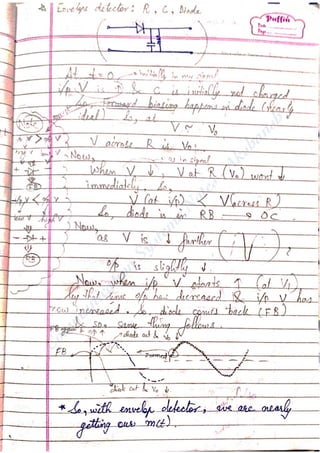 Envelope detector: R, C, Diode
Puffin
Date
Page
At t = 0, → initially in my signal
i/p V is ↑ & C is initially not charged
So, forward biasing happens in diode (nearly
ideal) So, at
V ≈ V₀
Note
V across R is V₀.
Now, as in signal
When V ↓, V at R (V₀) won't ↓
immediately. So,
V (at i/p) < V (across R)
So, diode is in RB → OC
Now,
as V is ↓ further
RB
o/p is slightly ↓.
Now when i/p V starts ↑ (at V₁)
Say that time o/p has decreased & i/p V has
now increased. So, diode comes back (FB)
& so, same thing follows.
FB
diode cut &
diode cut & V₀ ↓
* So, with envelop detector, we are nearly
getting our m(t).